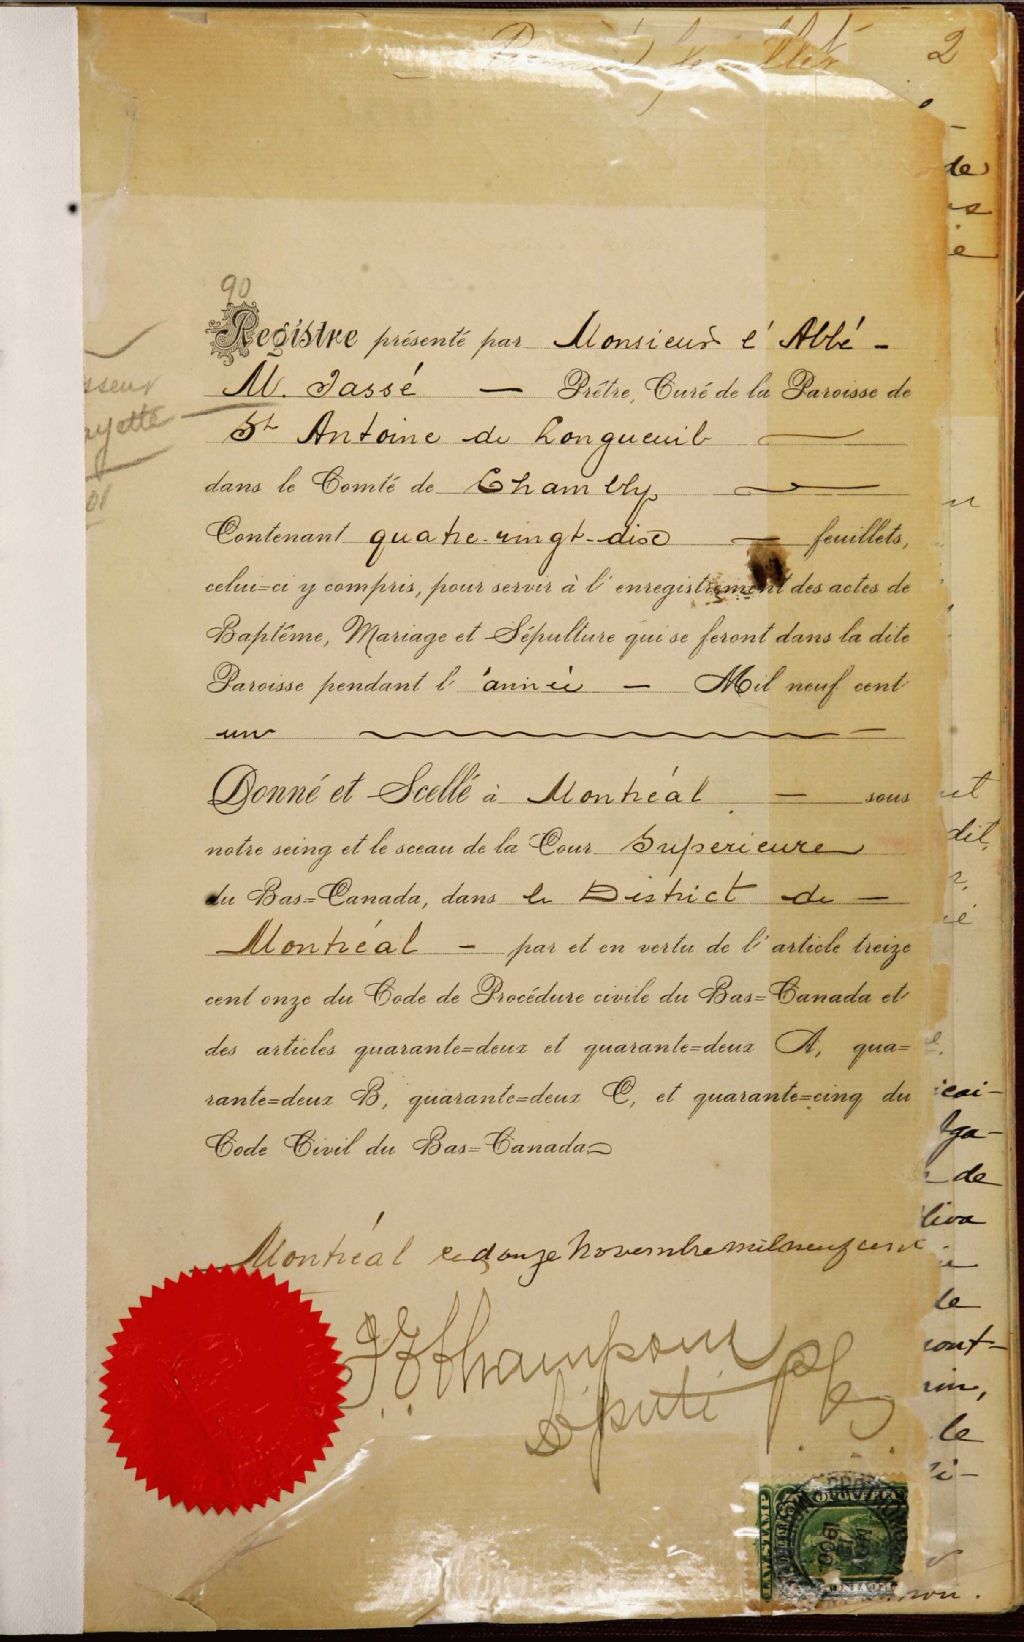 Premier feuillet
2
90
Registre présenté par Monsieur l'Abbé -
M. Tassé — Prêtre, Curé de la Paroisse de
St Antoine de Longueuil
dans le Comté de Chambly
Contenant quatre-vingt-dix — feuillets,
celui=ci y compris, pour servir à l'enregistrement des actes de
Baptême, Mariage et Sépulture qui se feront dans la dite
Paroisse pendant l'année — Mil neuf cent
un
Donné et Scellé à Montréal — sous
notre seing et le sceau de la Cour Supérieure
du Bas=Canada, dans le District de —
Montréal — par et en vertu de l'article treize
cent onze du Code de Procédure civile du Bas=Canada et
des articles quarante=deux et quarante=deux A, qua=
rante=deux B, quarante=deux C, et quarante=cinq du
Code Civil du Bas=Canada
Montréal ce douze Novembre mil neuf cent
Député p
LAW STAMP
NOV
12
1900
de
dit,
cai-
de
le
le